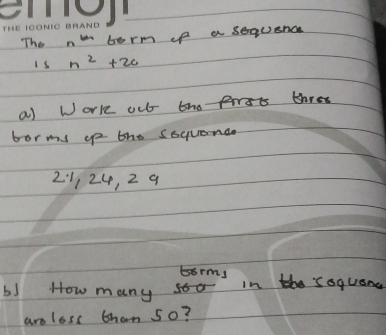 emoji
THE ICONIC BRAND
The nth term of a sequence
is n² + 20
a) Work out the first three
terms of the sequence
21, 24, 29
b) How many terms in the sequence
are less than 50?